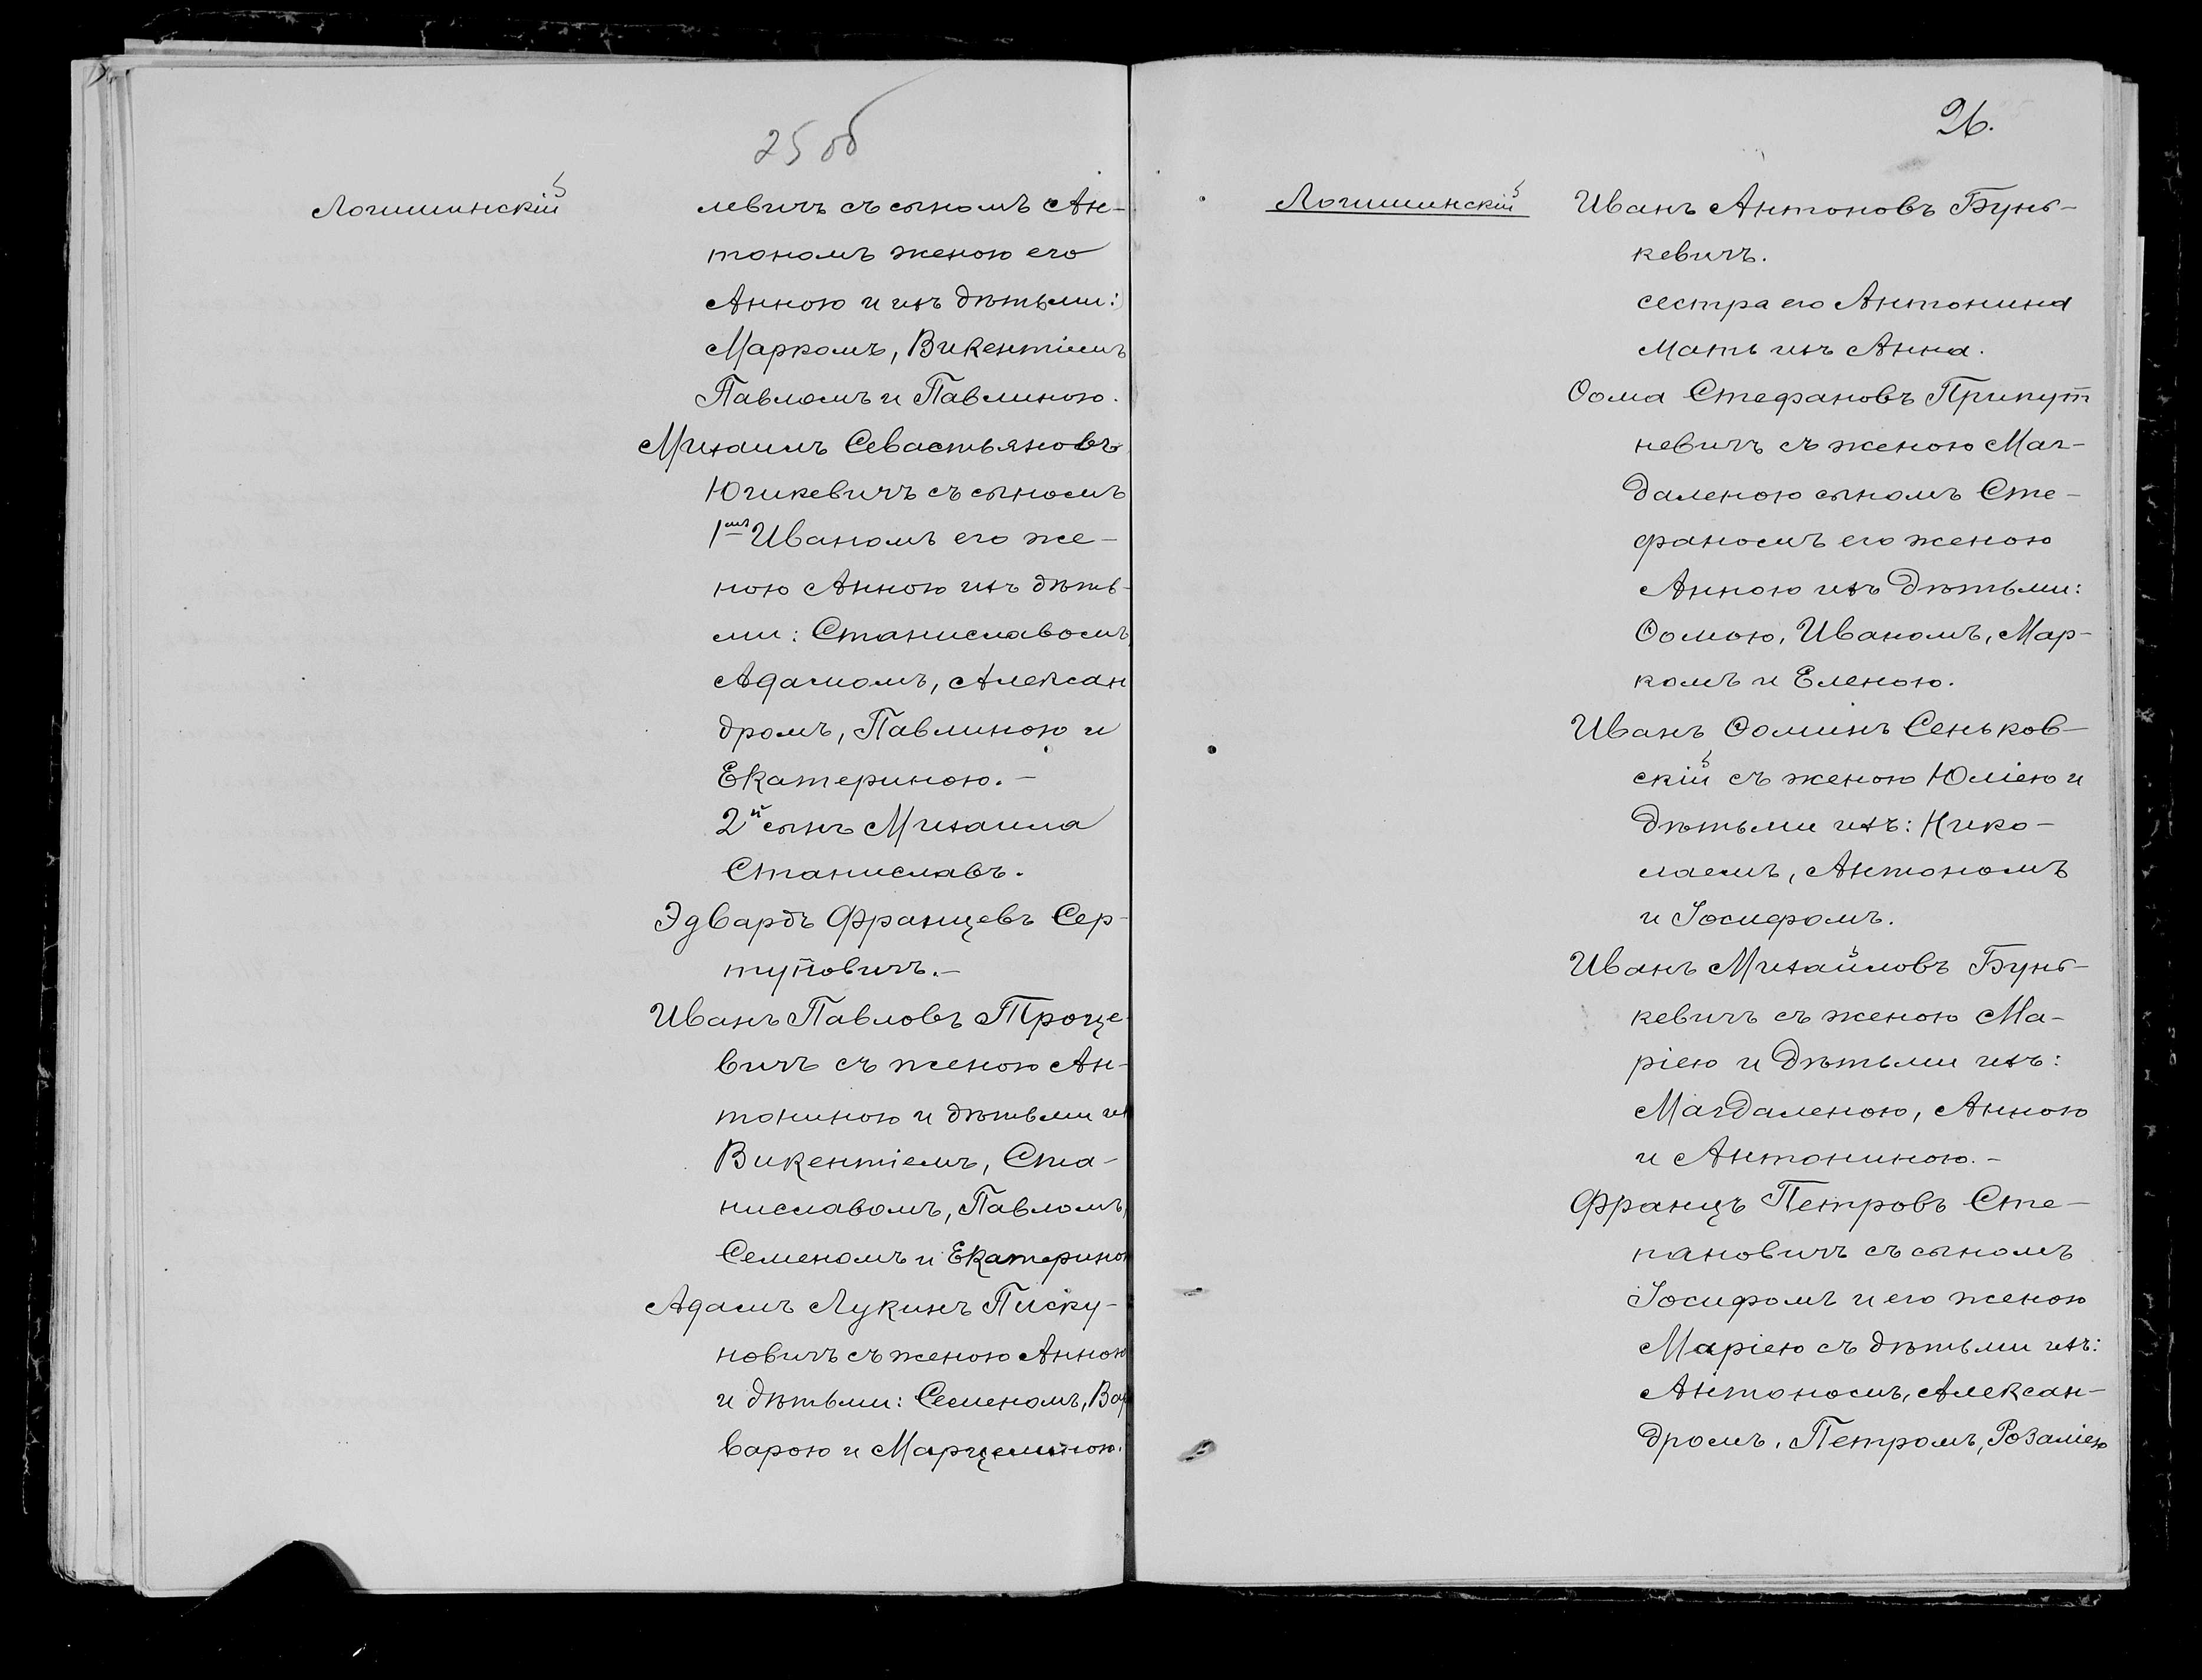 25 об
Логишинскій
левичъ съ сыномъ Ан-
тономъ женою его
Анною и ихъ дѣтьми:
Маркомъ, Викентіемъ
Павломъ и Павлиною.
Михаилъ Севастьяновъ
Югикевичъ съ сыномъ
1мъ Иваномъ его же-
ною Анною ихъ дѣть-
ми: Станиславомъ,
Адамомъ, Алексан
дромъ, Павлиною и
Екатериною.-
2й сынъ Михаила
Станиславъ.
Эдвардъ Францевъ Сер-
туповичъ.-
Иванъ Павловъ Троце-
вичъ съ женою Ан-
тониною и дѣтьми их
Викентіемъ, Ста-
ниславомъ, Павломъ,
Семеномъ и Екатериною
Адамъ Лукинъ Писку-
новичъ съ женою Анною
и дѣтьми: Семеномъ, Вар
варою и Марцелиною.
26.
Логишинскій
Иванъ Антоновъ Бунь-
кевичъ.
сестра его Антонина
Мать ихъ Анна.
Ѳома Стефановъ Припут
невичъ съ женою Маг-
даленою сыномъ Сте-
фаномъ его женою
Анною ихъ дѣтьми:
Ѳомою, Иваномъ, Мар-
комъ и Еленою.
Иванъ Ѳоминъ Сеньков-
скій съ женою Юліею и
дѣтьми ихъ: Нико-
лаемъ, Антономъ
и Іосифомъ.
Иванъ Михайловъ Бунь-
кевичъ съ женою Ма-
ріею и дѣтьми ихъ:
Магдаленою, Анною
и Антониною.-
Францъ Петровъ Сте-
пановичъ съ сыномъ
Іосифомъ и его женою
Маріею съ дѣтьми ихъ:
Антономъ, Алексан-
дромъ, Петромъ, Розаліею